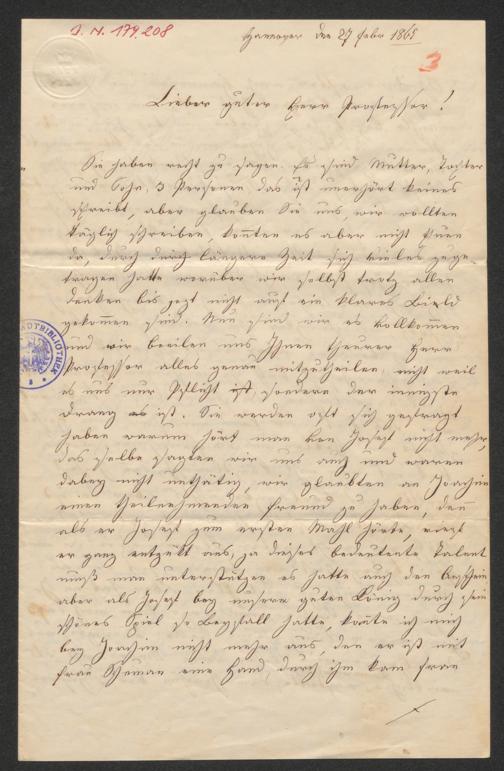 J. N. 179.208
Hannover den 27 Febr 1865
3
Lieber guter Herr Professor!
Sie haben recht zu sagen. Es sind Mutter, Tochter
und Sohn, 3 Personen das ist unerhört keines
schreibt, aber glauben Sie uns, wir wollten
täglich schreiben, konnten es aber nicht thuen
da, durch durch längere Zeit sich vieles zuge
tragen hatte worüber wir selbst trotz allen
denken bis jezt nicht auf ein klares Bield
gekommen sind. Nun sind wir es vollkommen
und wir beeilen uns Ihnen theurer Herr
Professor alles genau mitzutheilen, nicht weil
es uns nur Pflicht ist, sondern der innigste
Drang es ist. Sie werden oft sich gefragt
haben warum hört man von Josef nicht mehr,
das selbe sagten wir uns auch und waren
dabey nicht unthätig, wir glaubten an Joachim
einen theilnehmenden Freund zu haben, den
als er Josef zum ersten Mahl hörte, rief
er ganz entzükt aus, ja dieses bedeutente Talent
muß man unterstützen es hatte auch den Anschein
aber als Josef bey unserm guten König durch sein
schönes Spiel so Beyfall hatte, kante ich mich
bey Joachim nicht mehr aus, den er ist mit
Frau eine Hand, durch ihm kam Frau
STADTBIBLIOTHEK